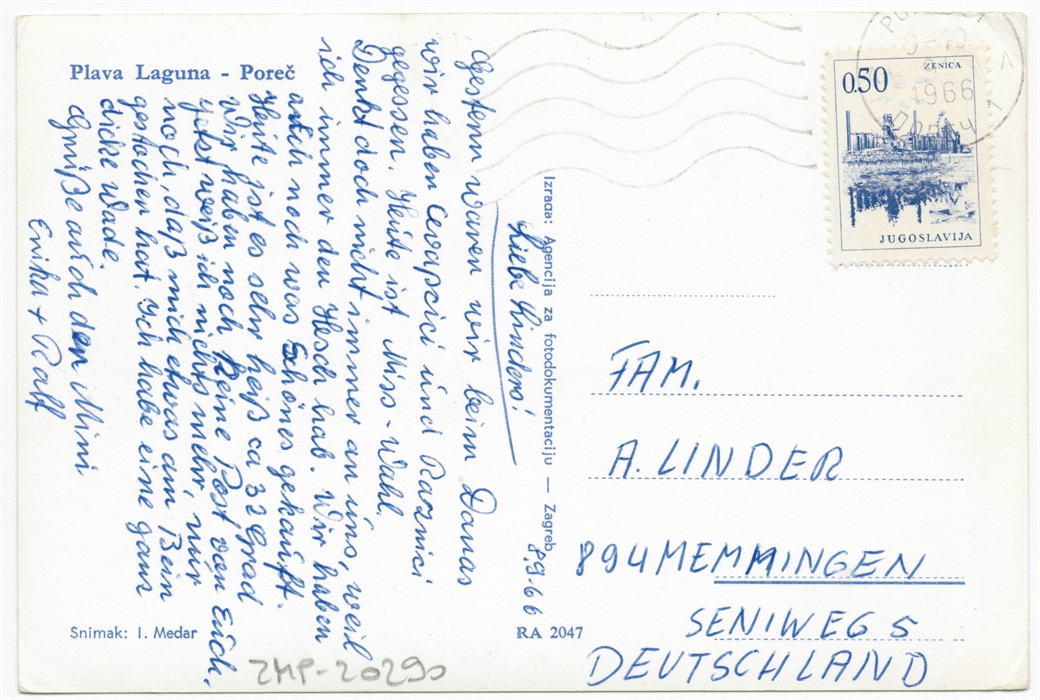 Plava Laguna - Poreč
8.9.66
Liebe Kinders!
Gestern waren wir beim Danas
wir haben Cevapcici und Raznici
gegessen. Heute ist Miss-Wahl.
Denkt doch nicht immer an uns, weil
ich immer den Hesch hab. Wir haben
auch noch was Schönes gekauft.
Heute ist es sehr heiß ca 32 Grad
Wir haben noch keine Post von Euch.
jetzt weiß ich nichts mehr, nur
noch, daß mich etwas am Bein
gestochen hat. Ich habe eine ganz
dicke Wade.
Grüße auch den Mimi
Erika + Ralf
Snimak: I. Medar
ZMP-20290
Izrada: Agencija za fotodokumentaciju — Zagreb
RA 2047
0.50
ZENICA
JUGOSLAVIJA
1966
FAM.
A. LINDER
894 MEMMINGEN
SENIWEG 5
DEUTSCHLAND